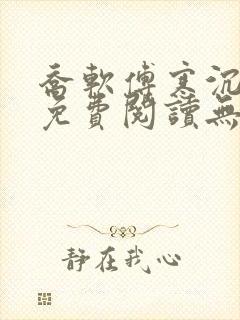 喬軟傅寒沉
免費閱讀無
静在我心